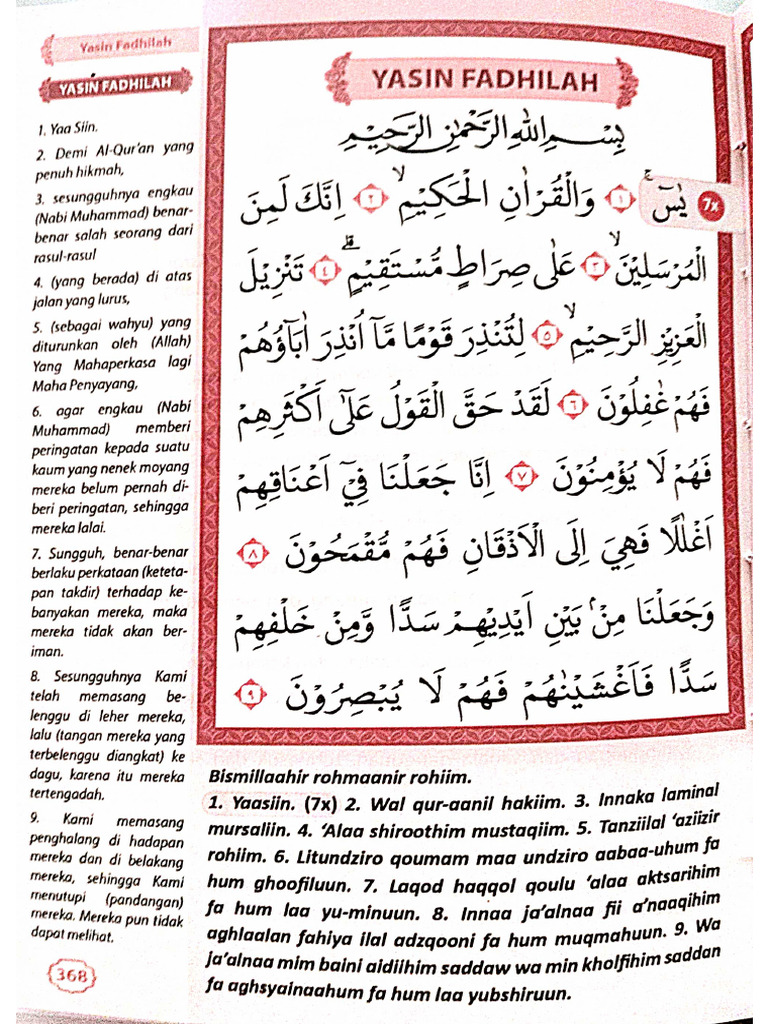 Yasin Fadhilah
YASIN FADHILAH
1. Yaa Siin.
2. Demi Al-Qur'an yang
penuh hikmah,
3. sesungguhnya engkau
(Nabi Muhammad) benar-
benar salah seorang dari
rasul-rasul
4. (yang berada) di atas
jalan yang lurus,
5. (sebagai wahyu) yang
diturunkan oleh (Allah)
Yang Mahaperkasa lagi
Maha Penyayang,
6. agar engkau (Nabi
Muhammad) memberi
peringatan kepada suatu
kaum yang nenek moyang
mereka belum pernah di-
beri peringatan, sehingga
mereka lalai.
7. Sungguh, benar-benar
berlaku perkataan (keteta-
pan takdir) terhadap ke-
banyakan mereka, maka
mereka tidak akan ber-
iman.
8. Sesungguhnya Kami
telah memasang be-
lenggu di leher mereka,
lalu (tangan mereka yang
terbelenggu diangkat) ke
dagu, karena itu mereka
tertengadah.
9. Kami memasang
penghalang di hadapan
mereka dan di belakang
mereka, sehingga Kami
menutupi (pandangan)
mereka. Mereka pun tidak
dapat melihat.
368
YASIN FADHILAH
بِسْمِ اللهِ الرَّحْمٰنِ الرَّحِيْمِ
7x يٰسۤ ۚ ١ وَالْقُرْاٰنِ الْحَكِيْمِۙ ٢ اِنَّكَ لَمِنَ
الْمُرْسَلِيْنَۙ ٣ عَلٰى صِرَاطٍ مُّسْتَقِيْمٍۗ ٤ تَنْزِيْلَ
الْعَزِيْزِ الرَّحِيْمِۙ ٥ لِتُنْذِرَ قَوْمًا مَّآ اُنْذِرَ اٰبَاۤؤُهُمْ
فَهُمْ غٰفِلُوْنَ ٦ لَقَدْ حَقَّ الْقَوْلُ عَلٰٓى اَكْثَرِهِمْ
فَهُمْ لَا يُؤْمِنُوْنَ ٧ اِنَّا جَعَلْنَا فِيْٓ اَعْنَاقِهِمْ
اَغْلٰلًا فَهِيَ اِلَى الْاَذْقَانِ فَهُمْ مُّقْمَحُوْنَ ٨
وَجَعَلْنَا مِنْۢ بَيْنِ اَيْدِيْهِمْ سَدًّا وَّمِنْ خَلْفِهِمْ
سَدًّا فَاَغْشَيْنٰهُمْ فَهُمْ لَا يُبْصِرُوْنَ ٩
Bismillaahir rohmaanir rohiim.
1. Yaasiin. (7x) 2. Wal qur-aanil hakiim. 3. Innaka laminal
mursaliin. 4. 'Alaa shiroothim mustaqiim. 5. Tanziilal 'aziizir
rohiim. 6. Litundziro qoumam maa undziro aabaa-uhum fa
hum ghoofiluun. 7. Laqod haqqol qoulu 'alaa aktsarihim
fa hum laa yu-minuun. 8. Innaa ja'alnaa fii a'naaqihim
aghlaalan fahiya ilal adzqooni fa hum muqmahuun. 9. Wa
ja'alnaa mim baini aidiihim saddaw wa min kholfihim saddan
fa aghsyainaahum fa hum laa yubshiruun.